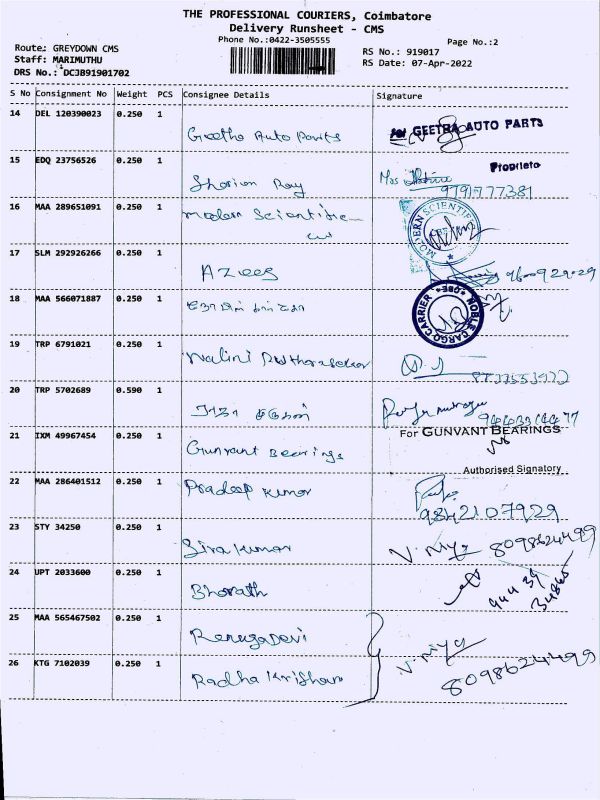 THE PROFESSIONAL COURIERS, Coimbatore
Delivery Runsheet - CMS
Phone No.:0422-3505555
Page No.:2
Route: GREYDOWN CMS
RS No.: 919017
Staff: MARIMUTHU
RS Date: 07-Apr-2022
DRS No.: DCJB91901702
S No Consignment No Weight PCS Consignee Details Signature
14 DEL 120390023 0.250 1
Geetha Auto Parts
for GEETRA AUTO PARTS
Proprieto
15 EDQ 23756526 0.250 1
Roy
9791777381
16 MAA 289651091 0.250 1
Modern Scientific
MODERN SCIENTIFI
CBE
17 SLM 292926266 0.250 1
Azees
18 MAA 566071887 0.250 1
NOBLE CARGO CARRIER * CBE *
19 TRP 6791021 0.250 1
Nalini
20 TRP 5702689 0.590 1
ராஜா முருகன்
21 IXM 49967454 0.250 1
Gunvant Bearings
For GUNVANT BEARINGS
Authorised Signatory
22 MAA 286401512 0.250 1
Pradeep Kumar
9842107929
23 STY 34250 0.250 1
Siva Kumar
8098624499
24 UPT 2033600 0.250 1
Bharath
94439
34865
25 MAA 565467502 0.250 1
RenugaDevi
26 KTG 7102039 0.250 1
Radha Krishan
8098624499